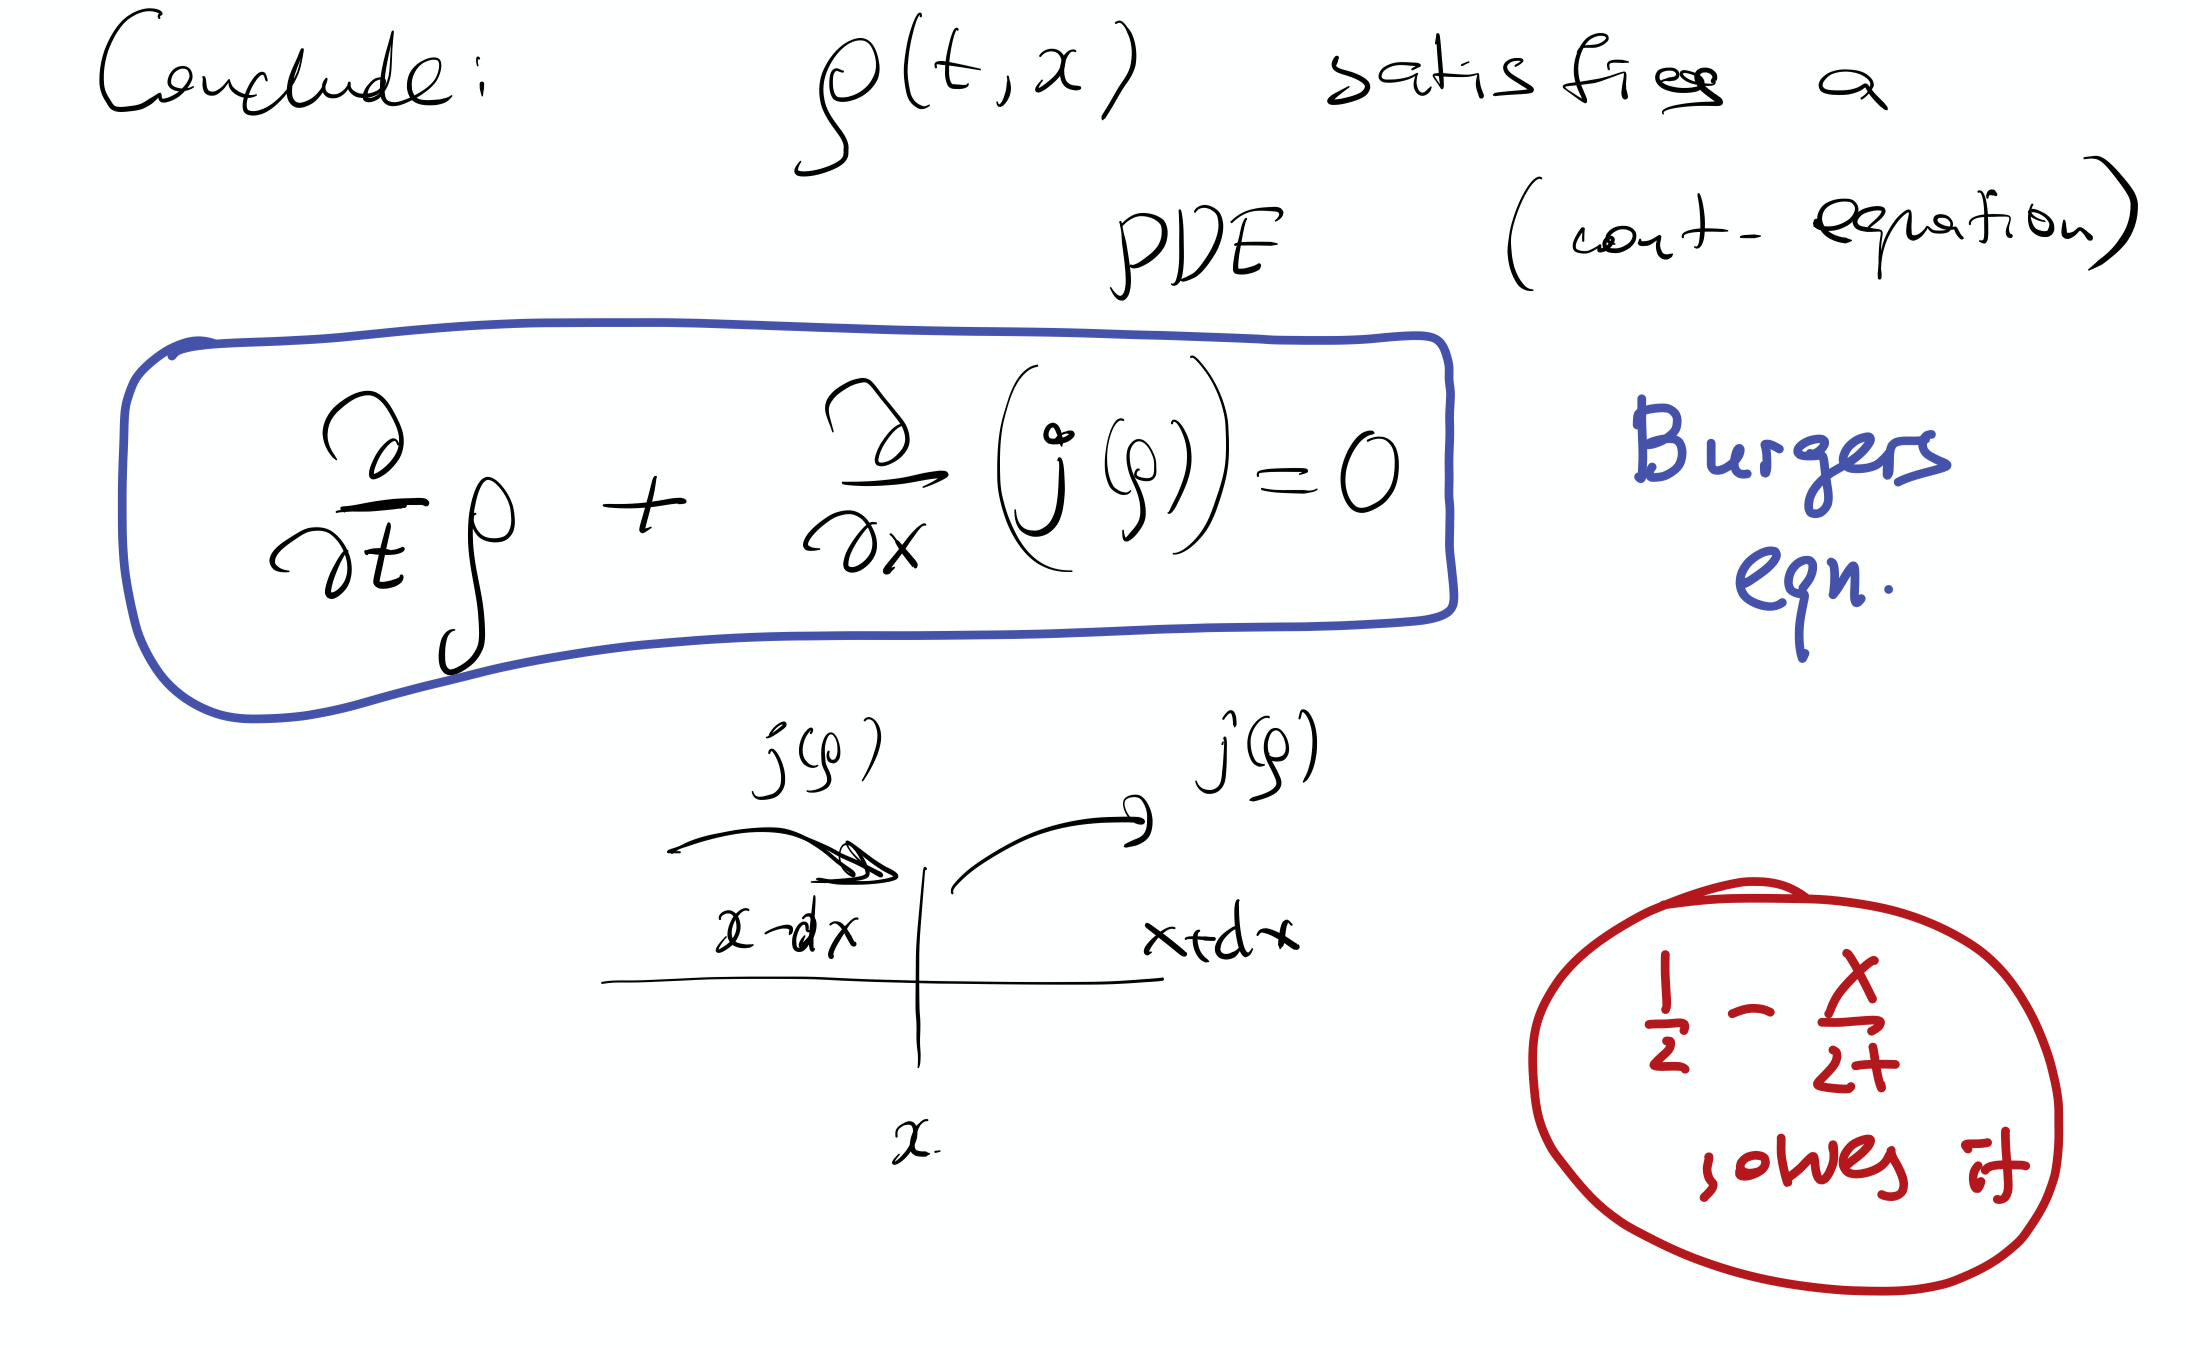 Conclude: ρ(t,x) satisfies a
PDE (cont. equation)
∂/∂t ρ + ∂/∂x (j(ρ)) = 0
Burgers
eqn.
j(ρ) j(ρ)
x-dx x+dx
x
1/2 - x/2t
solves it